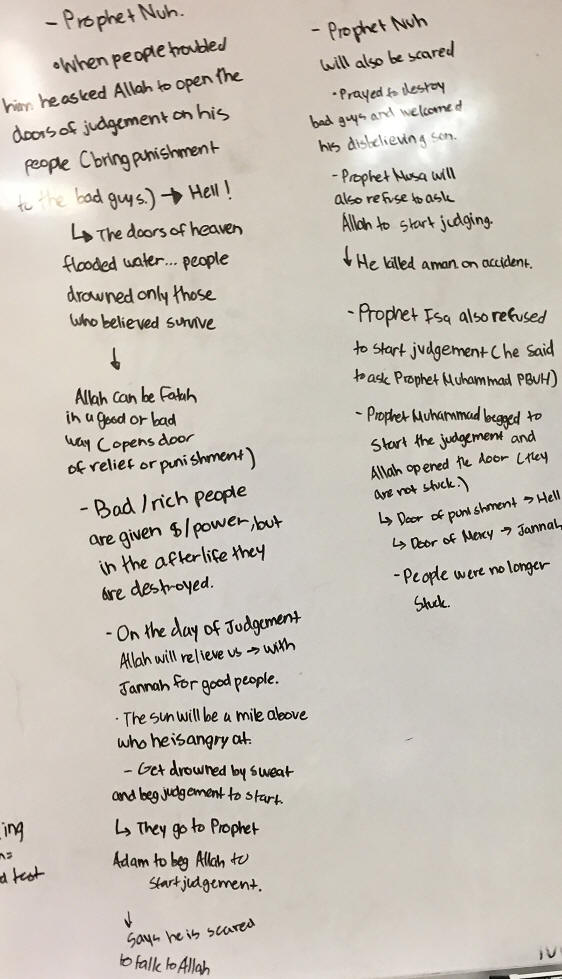 - Prophet Nuh.
• When people troubled
him he asked Allah to open the
doors of judgement on his
people (bring punishment
to the bad guys.) → Hell!
↳ The doors of heaven
flooded water... people
drowned only those
who believed survive
↓
Allah can be Fatah
in a good or bad
way (opens door
of relief or punishment)
- Bad / rich people
are given $/power, but
in the afterlife they
are destroyed.
- On the day of Judgement
Allah will relieve us → with
Jannah for good people.
· The sun will be a mile above
who he is angry at.
- Get drowned by sweat
and beg judgement to start.
↳ They go to Prophet
Adam to beg Allah to
start judgement.
↓
Says he is scared
to talk to Allah
- Prophet Nuh
will also be scared
• Prayed to destroy
bad guys and welcomed
his disbelieving son.
- Prophet Musa will
also refuse to ask
Allah to start judging.
↓ He killed a man on accident.
- Prophet Isa also refused
to start judgement (he said
to ask Prophet Muhammad PBUH)
- Prophet Muhammad begged to
start the judgement and
Allah opened the door (they
are not stuck.)
↳ Door of punishment → Hell
↳ Door of Mercy → Jannah
- People were no longer
stuck.
ing
test